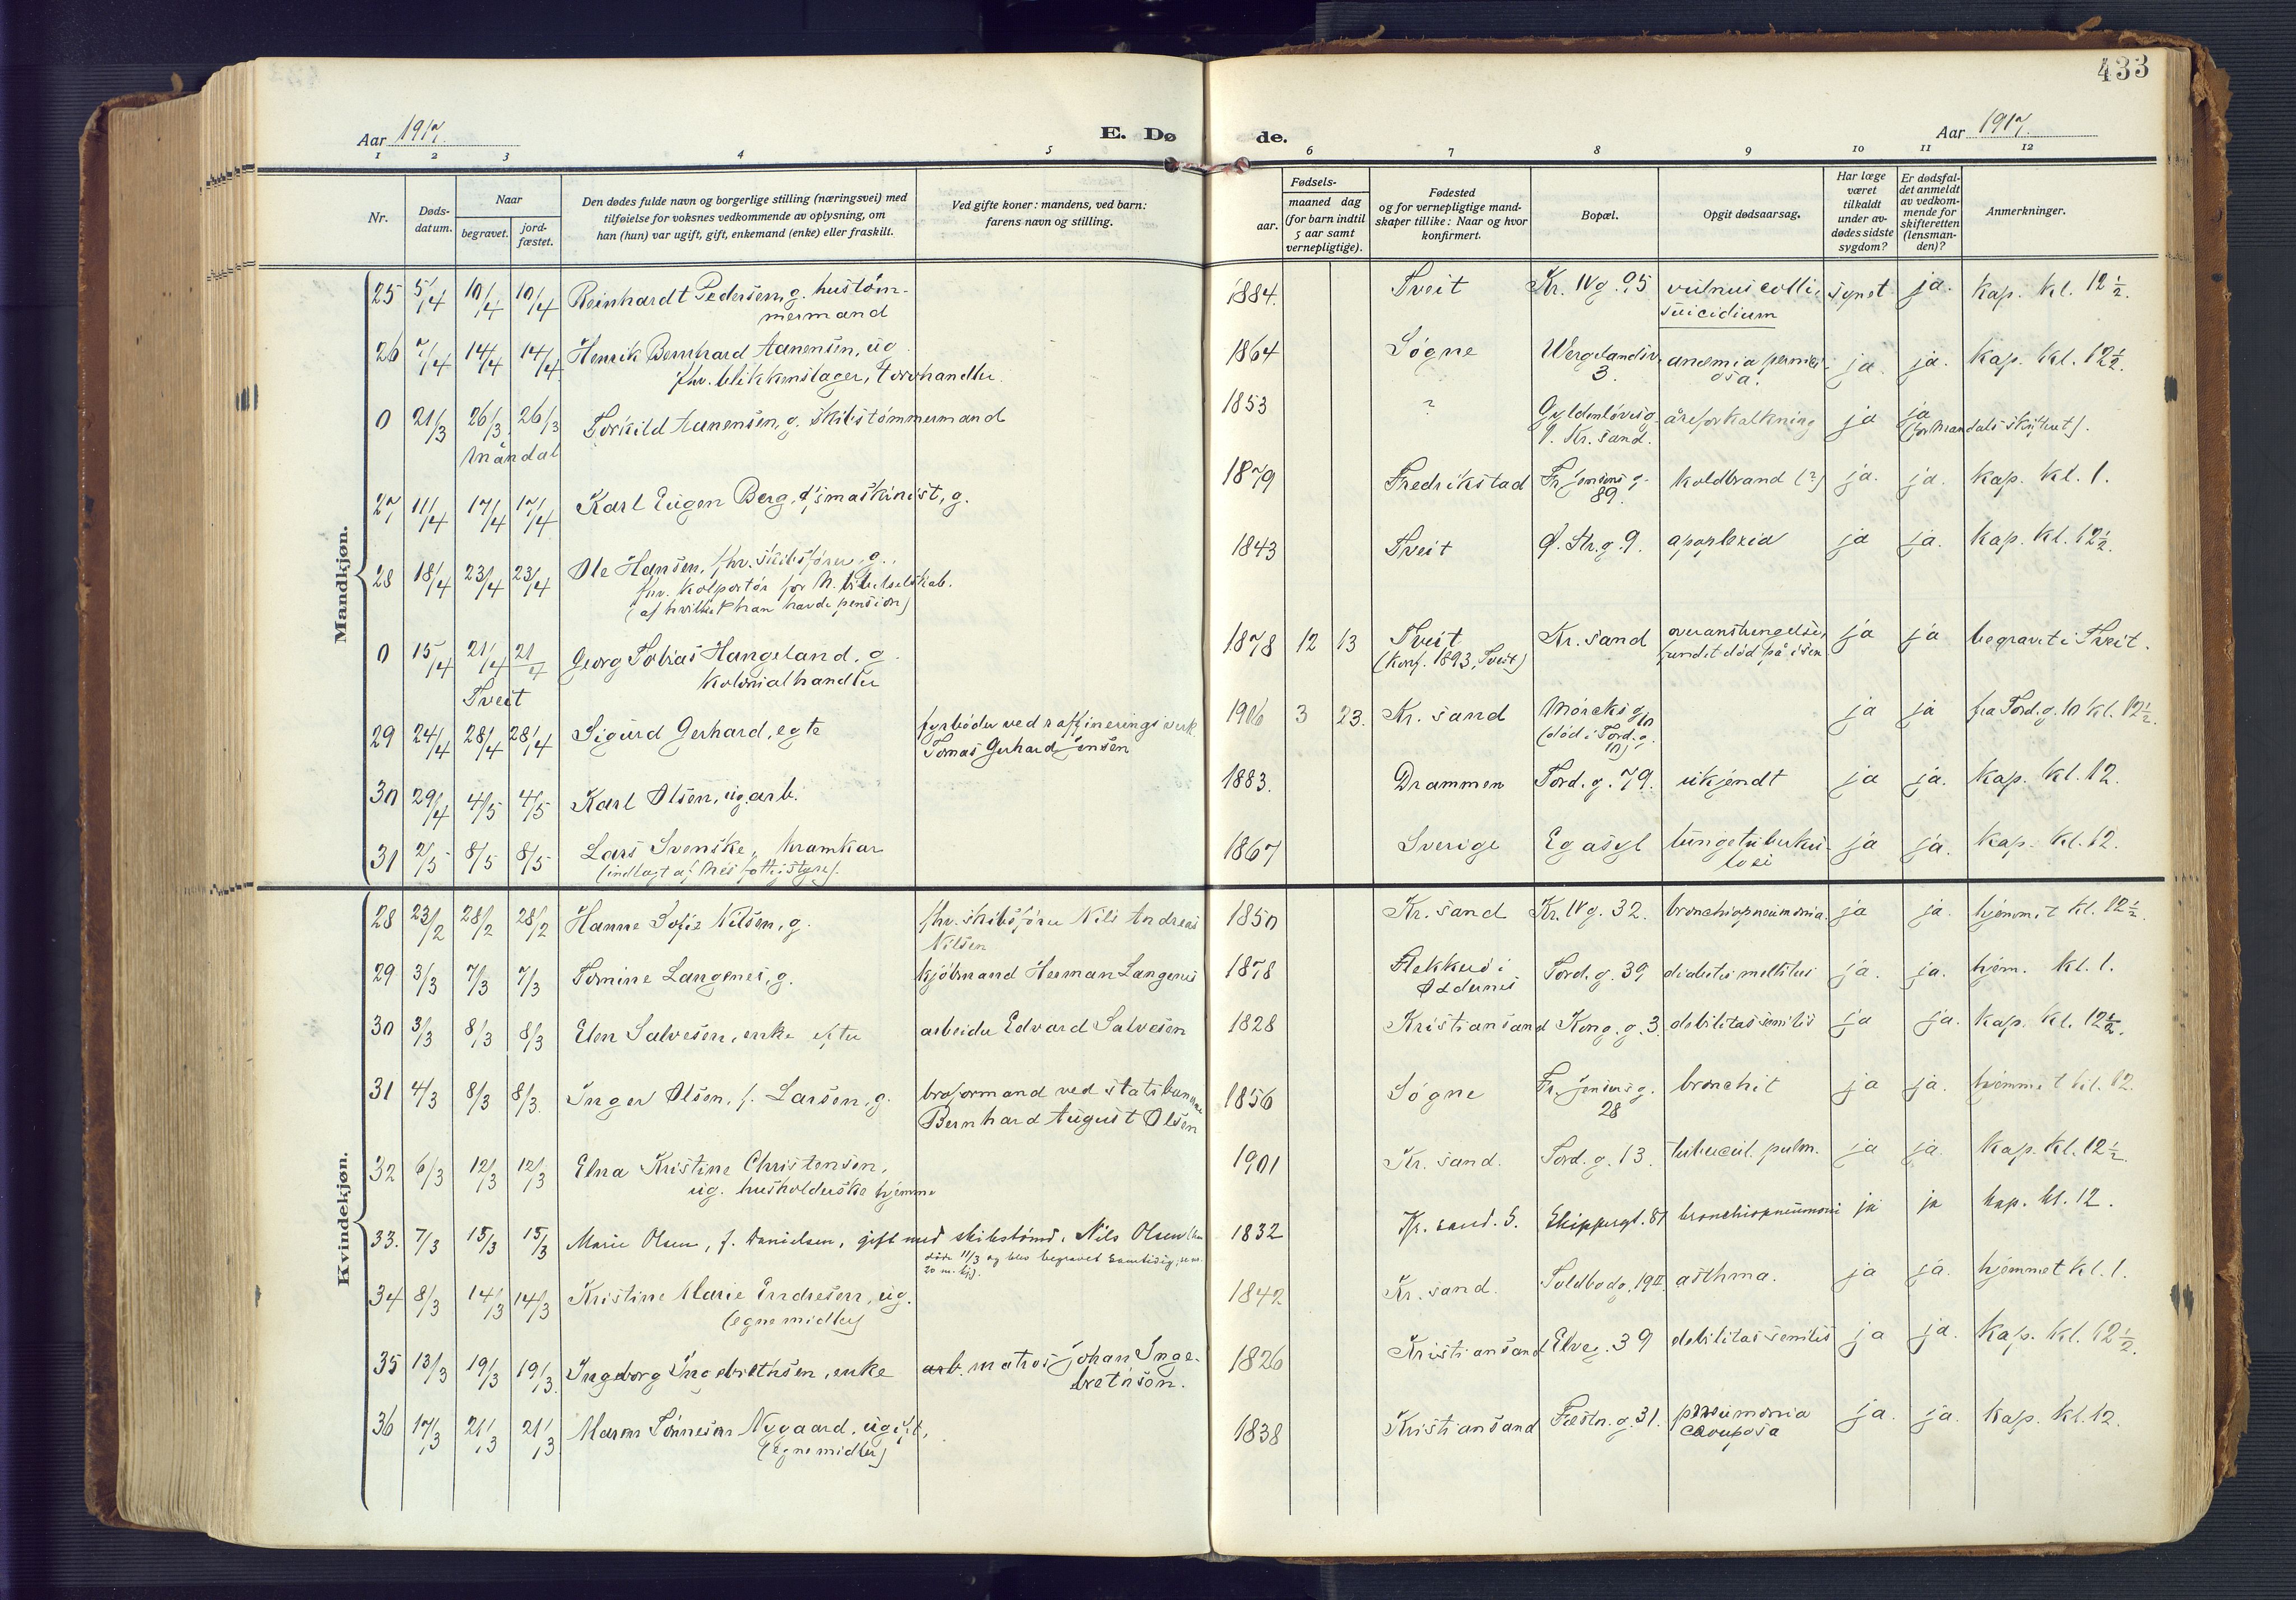 433
Aar 1917.
E. Dø
de.
Aar 1917.
1 2 3 4 5 6 7 8 9 10 11 12
Nr.
Døds-
datum.
Naar
begravet.
jord-
fæstet.
Den dødes fulde navn og borgerlige stilling (næringsvei) med
tilføielse for voksnes vedkommende av oplysning, om
han (hun) var ugift, gift, enkemand (enke) eller fraskilt.
Ved gifte koner: mandens, ved barn:
farens navn og stilling.
Fødsels-
aar.
maaned dag
(for barn indtil
5 aar samt
vernepligtige).
Fødested
og for vernepligtige mand-
skaper tillike: Naar og hvor
konfirmert.
Bopæl.
Opgit dødsaarsag.
Har læge
været
tilkaldt
under av-
dødes sidste
sygdom?
Er dødsfal-
det anmeldt
av vedkom-
mende for
skifteretten
(lensman-
den)?
Anmerkninger.
Mandkjøn.
25 5/4 10/4 10/4 Reinhardt Pedersen, g. hustøm-
mermand
1884. Tveit Kr. IV g. 95 vulnus colli, synet ja. Kap. kl. 12 1/2.
suicidium
26 7/4 14/4 14/4 Henrik Bernhard Aanensen, ug.
fhv. blikkenslager, torvhandler.
1864 Søgne Wergelandsv. 3. anæmia perniciosa. ja. ja. Kap. kl. 12 1/2.
0 21/3 26/3 26/3 Torkild Aanensen, g. skibstømmermand
Mandal
1853 ? Gyldenløvesg. 9. Kr. sand. åreforkalkning ja ja
(for Mandals skifteret).
27 11/4 17/4 17/4 Karl Eugen Berg, d/s maskinist, g.
1879 Fredrikstad Fr. Jensens g. 89. Koldbrand (?) ja. ja. Kap. kl. 1.
28 18/4 23/4 23/4 Ole Hansen, fhv. skibsfører, g.,
fhv. kolportør for N. bibelselskab.
(af hvilket han havde pension)
1843 Tveit Ø. Str. g. 9. apoplexia ja ja. Kap. kl. 12 1/2.
0 15/4 21/4 21/4 Georg Tobias Hangeland, g.
Kolonialhandler
Tveit
1878 12 13 Tveit Kr. sand overanstrengelse, ja ja begravet i Tveit.
(Konf. 1893, Tveit) fundet død på isen
29 24/4 28/4 28/4 Sigurd Gerhard, egte fyrbøder ved raffineringsverk.
Tomas Gerhard Jensen
1906 3 23. Kr. sand Mørcks g. 10 ja ja fra Tord. g. 10 kl. 12 1/2.
(død i Tord. g. 10)
30 29/4 4/5 4/5 Karl Olsen, ug. arb.
1883. Drammen Tord. g. 79. ukjendt ja ja. Kap. kl. 12.
31 2/5 8/5 8/5 Lars Svenske, kramkar
(indlagt af Nes fattigstyre).
1867 Sverige Eg asyl lungetuberkulosei ja ja. Kap. kl. 12.
Kvindekjøn.
28 23/2 28/2 28/2 Hanne Sofie Nilsen, g. fhv. skibsfører Nils Andreas
Nilsen
1850 Kr. sand Kr. IV g. 32. bronchiopneumonia. ja ja. hjemmet kl. 12 1/2.
29 3/3 7/3 7/3 Tomine Langenes, g. kjøbmand Herman Langenes
1878 Flekkerø i Oddernes Tord. g. 39 diabetes mellitus ja. ja. hjem. kl. 1.
30 3/3 8/3 8/3 Elen Salvesen, enke efter arbeider Edvard Salvesen
1828 Kristiansand Kong. g. 3. debilitas senilis ja ja. Kap. kl. 12 1/2.
31 4/3 8/3 8/3. Inger Olsen, f. Larsen, g. broformand ved statsbanerne
Bernhard August Olsen
1856 Søgne Fr. Jensens g. 28 bronchit ja ja. hjemmet kl. 12.
32 6/3 12/3 12/3 Elna Kristine Christensen,
ug. husholderske hjemme
1901 Kr. sand. Tord. g. 13. tubercul. pulm. ja ja. Kap. kl. 12 1/2.
33. 7/3 15/3 15/3 Marie Olsen, f. Danielsen, gift med skibstømd. Nils Olsen (han
døde 11/3 og blev begravet samtidig, se nr.
20 m. kj).
1832 Kr. sand. S. Skippergt. 81 bronchiopneumoni ja ja kap. kl. 12.
34 8/3 14/3 14/3 Kristine Marie Endresen, ug.
(egne midler)
1842 Kr. sand. Toldbodg. 19 II. asthma. ja ja. hjemmet kl. 1.
35 13/3 19/3 19/3. Ingeborg Ingebrethsen, enke arb. matros Johan Inge-
bretnson.
1826 Kristiansand Elveg. 39 debilitas senilis ja ja. Kap. kl. 12 1/2.
36 17/3 21/3 21/3 Maren Tønnesen Nygaard, ugift,
(egne midler)
1838 Kristiansand Fæstn. g. 31. pneumonia ja. ja. Kap. kl. 12.
crouposa